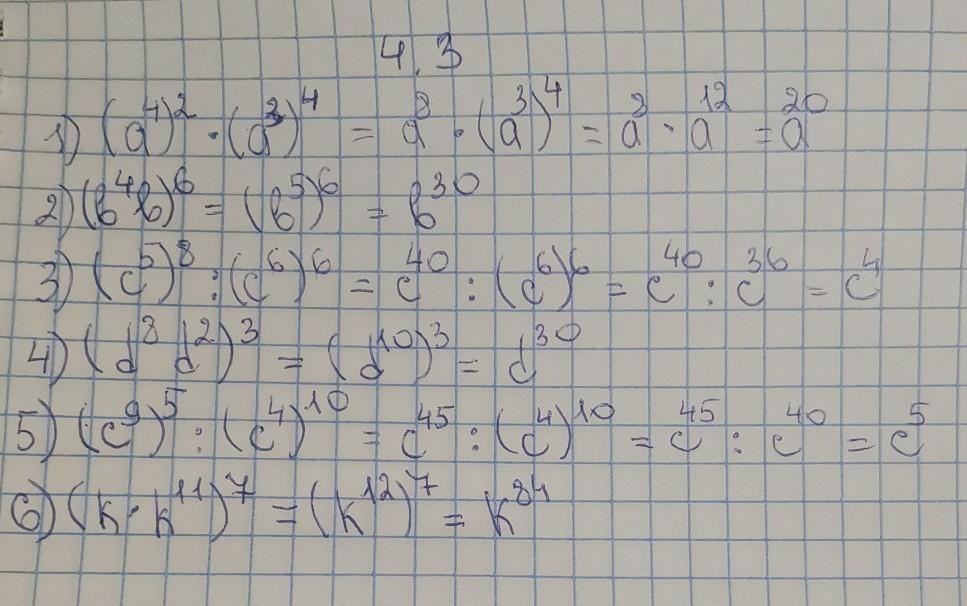 4.3
1) (a⁴)² · (a³)⁴ = a⁸ · (a³)⁴ = a⁸ · a¹² = a²⁰
2) (b⁴b)⁶ = (b⁵)⁶ = b³⁰
3) (c⁵)⁸ : (c⁶)⁶ = c⁴⁰ : (c⁶)⁶ = c⁴⁰ : c³⁶ = c⁴
4) (d⁸ d²)³ = (d¹⁰)³ = d³⁰
5) (c⁹)⁵ : (c⁴)¹⁰ = c⁴⁵ : (c⁴)¹⁰ = c⁴⁵ : c⁴⁰ = c⁵
6) (k · k¹¹)⁷ = (k¹²)⁷ = k⁸⁴